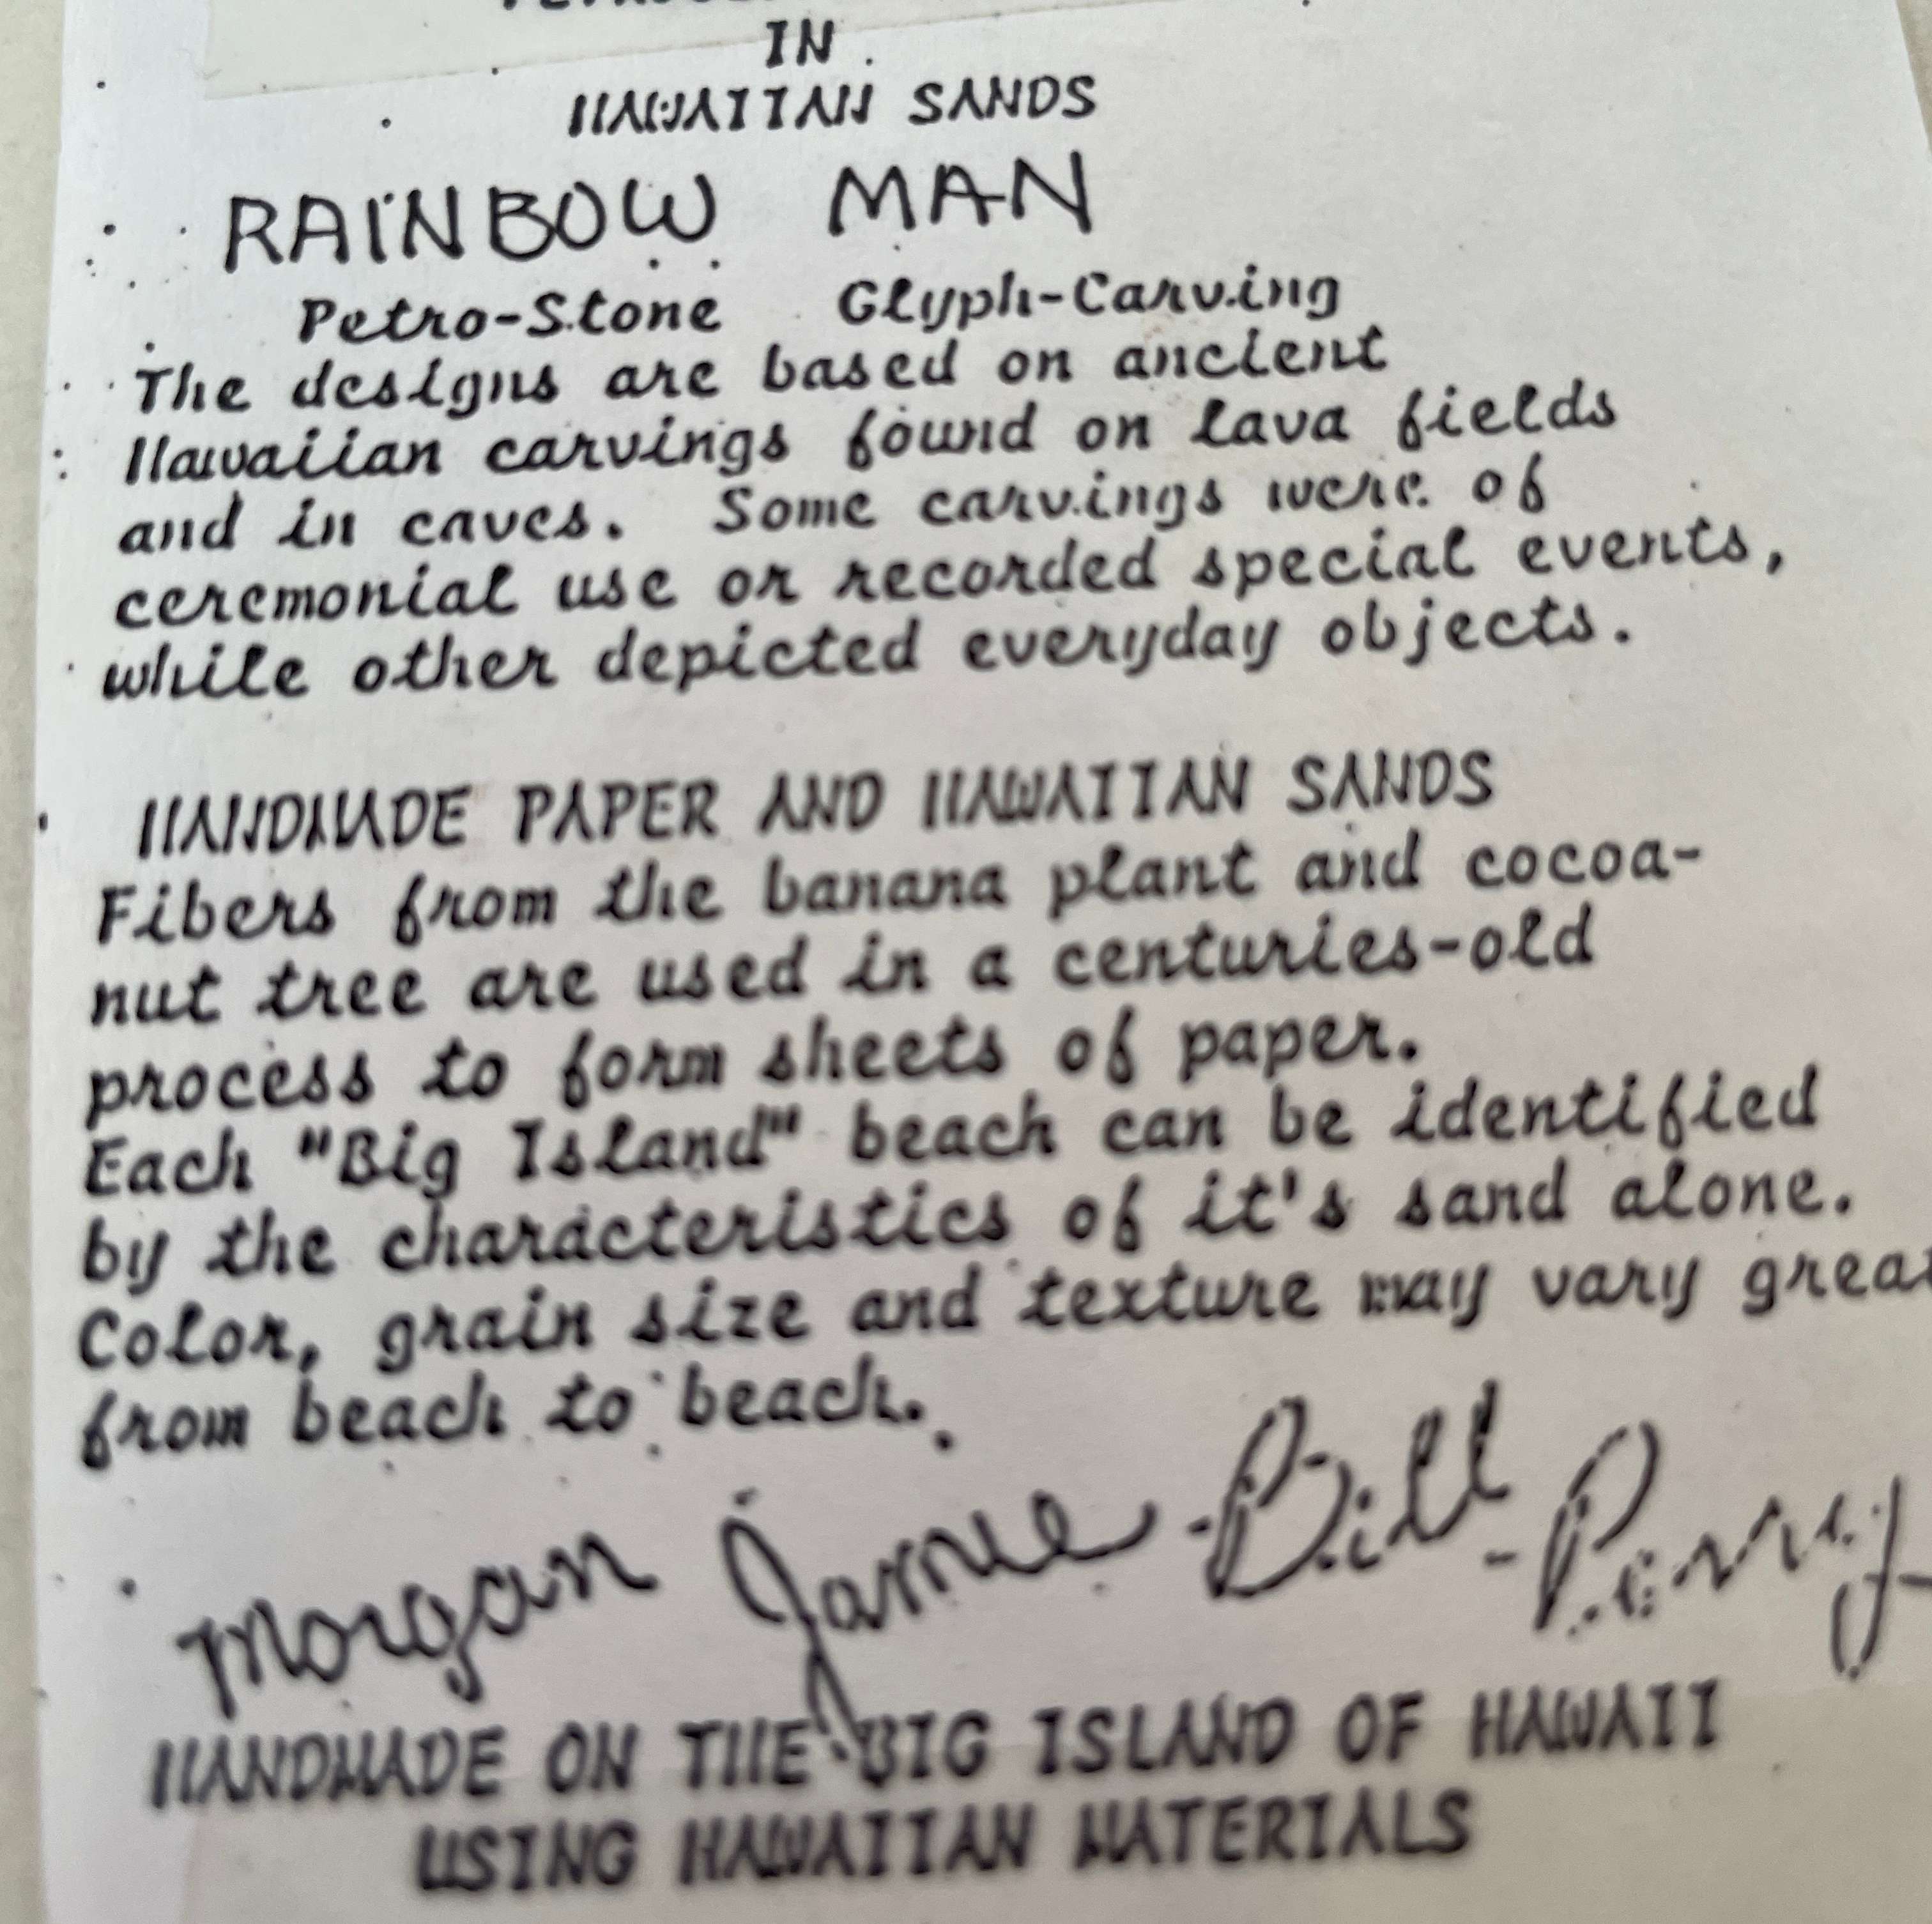 IN
HAWAIIAN SANDS
RAINBOW MAN
Petro-Stone Glyph-Carving
The designs are based on ancient
Hawaiian carvings found on lava fields
and in caves. Some carvings were of
ceremonial use or recorded special events,
while other depicted everyday objects.
HANDMADE PAPER AND HAWAIIAN SANDS
Fibers from the banana plant and cocoa-
nut tree are used in a centuries-old
process to form sheets of paper.
Each "Big Island" beach can be identified
by the characteristics of it's sand alone.
Color, grain size and texture may vary great
from beach to beach.
Morgan Jamie Bill Perry
HANDMADE ON THE BIG ISLAND OF HAWAII
USING HAWAIIAN MATERIALS